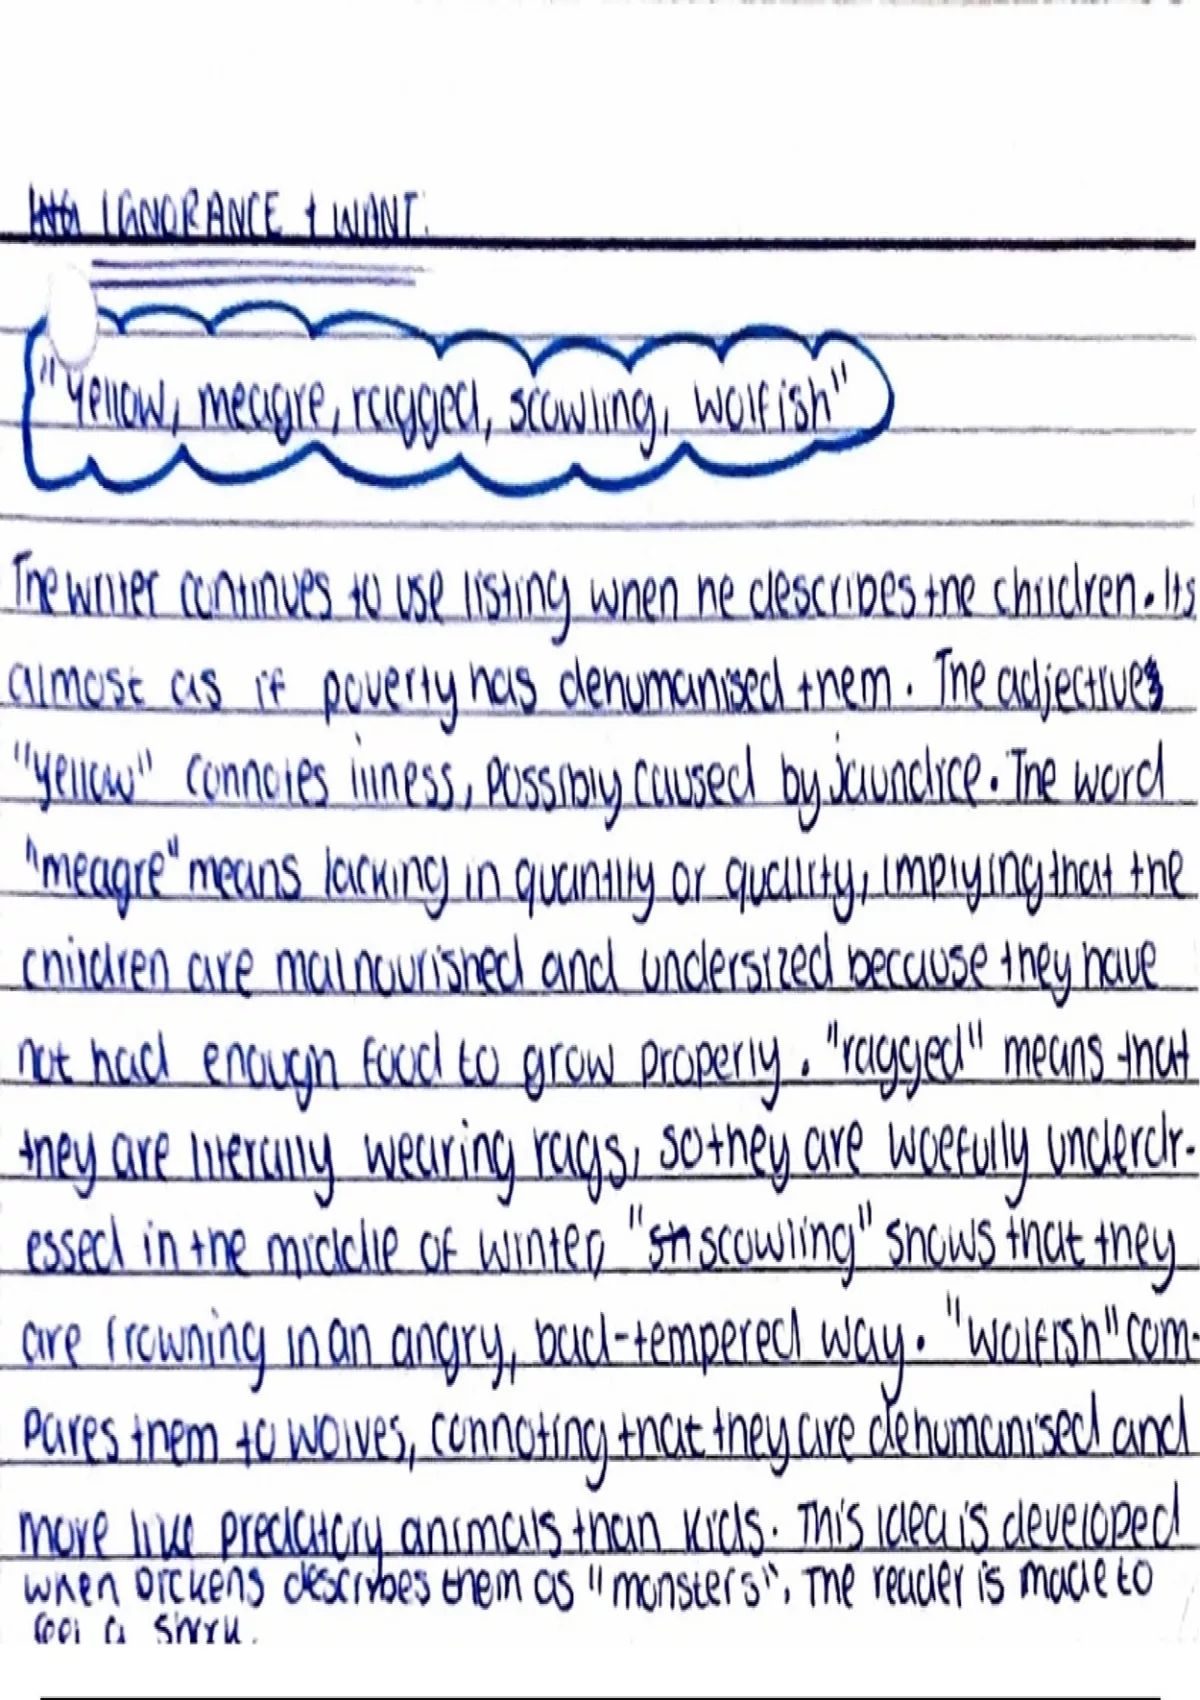 IGNORANCE + WANT.
"Yellow, meagre, ragged, scowling, wolfish"
The writer continues to use listing when he describes the children. Its
almost as if poverty has dehumanised them. The adjectives
"yellow" connotes illness, possibly caused by jaundice. The word
"meagre" means lacking in quantity or quality, implying that the
children are malnourished and undersized because they have
not had enough food to grow properly. "ragged" means that
they are literally wearing rags, so they are woefully underdr-
essed in the middle of winter, "scowling" shows that they
are frowning in an angry, bad-tempered way. "Wolfish" com-
pares them to wolves, connoting that they are dehumanised and
more like predatory animals than kids. This idea is developed
when Dickens describes them as "monsters". The reader is made to
a